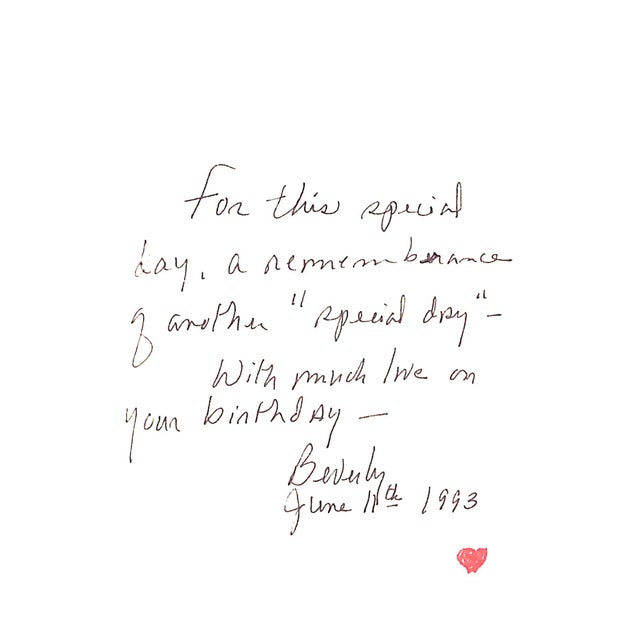 For this special
day, a remembrance
of another "special day" –
With much love on
your birthday —
Beverly
June 11th 1993